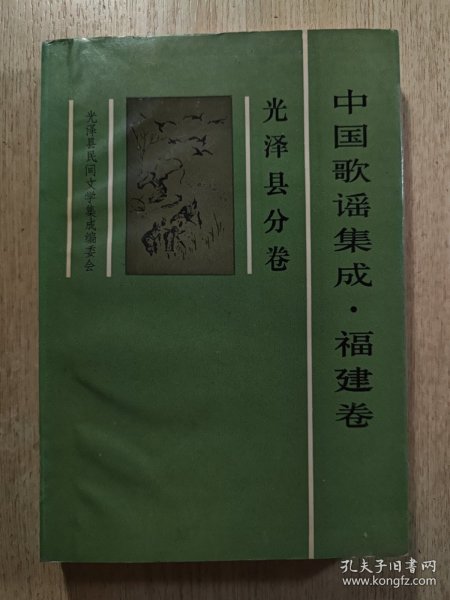 中国歌谣集成·福建卷
光泽县分卷
光泽县民间文学集成编委会
孔夫子旧书网
www.kongfz.com